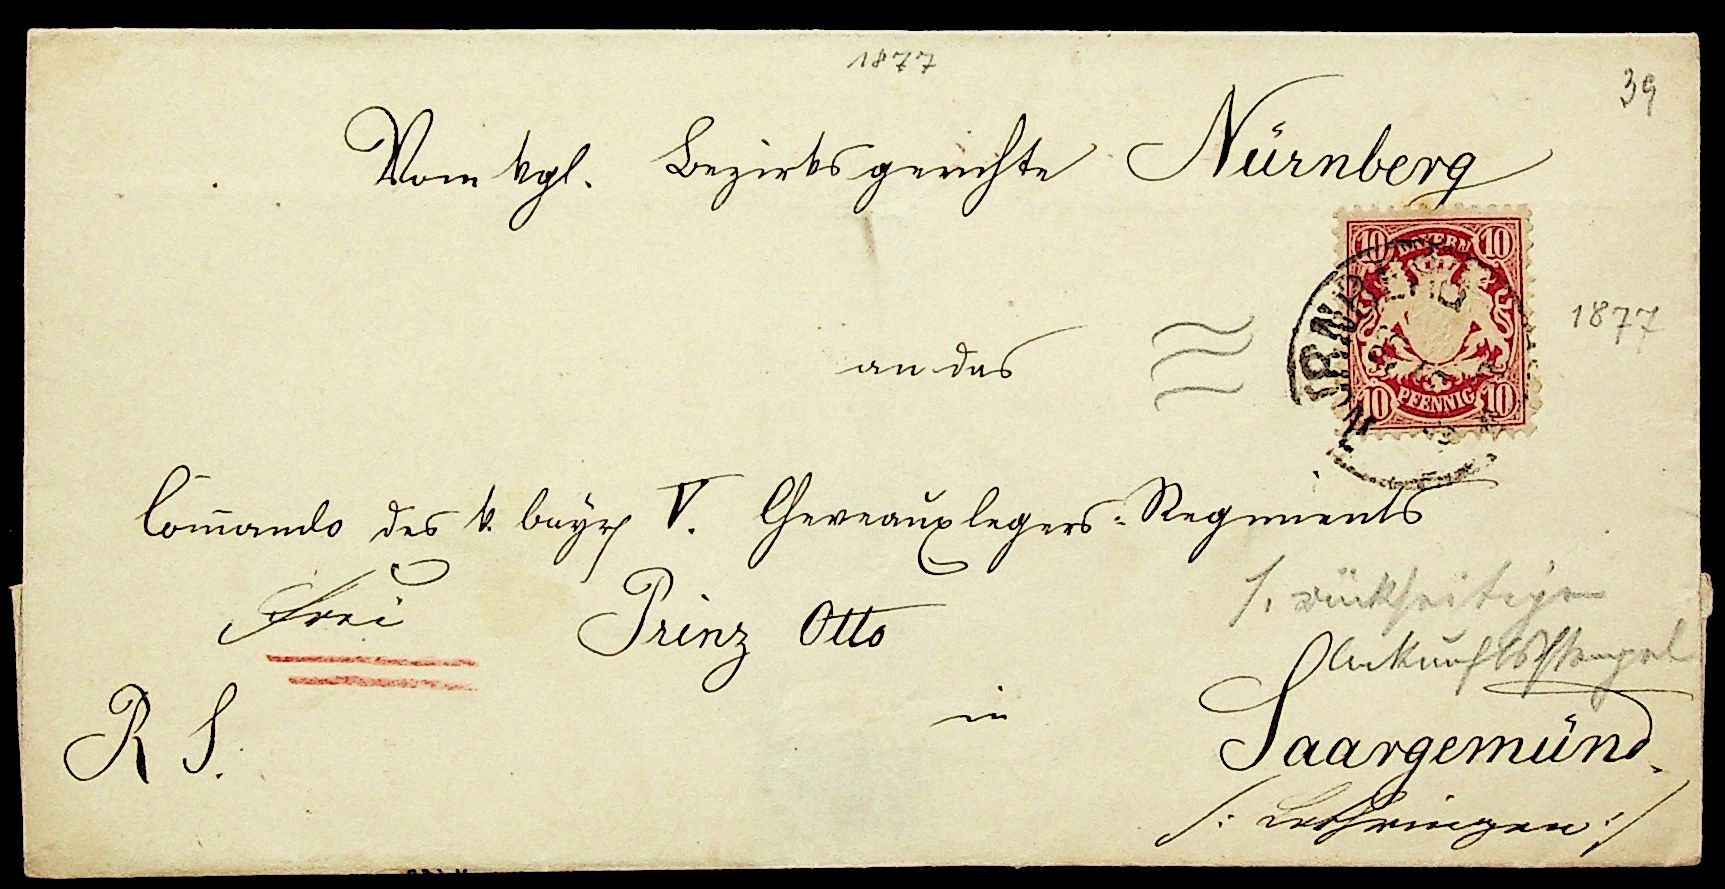 1877
39
Vom kgl. Bezirksgerichte Nürnberg
10 BAYERN 10
10 PFENNIG 10
NÜRNBERG
1877
an das
Com̅ando des k. bayr. V. Cheveauxlegers-Regiments
frei
Prinz Otto
s. rückseitigen
Ankunftsstempel
R S.
in
Saargemünd.
/: Lothringen :/